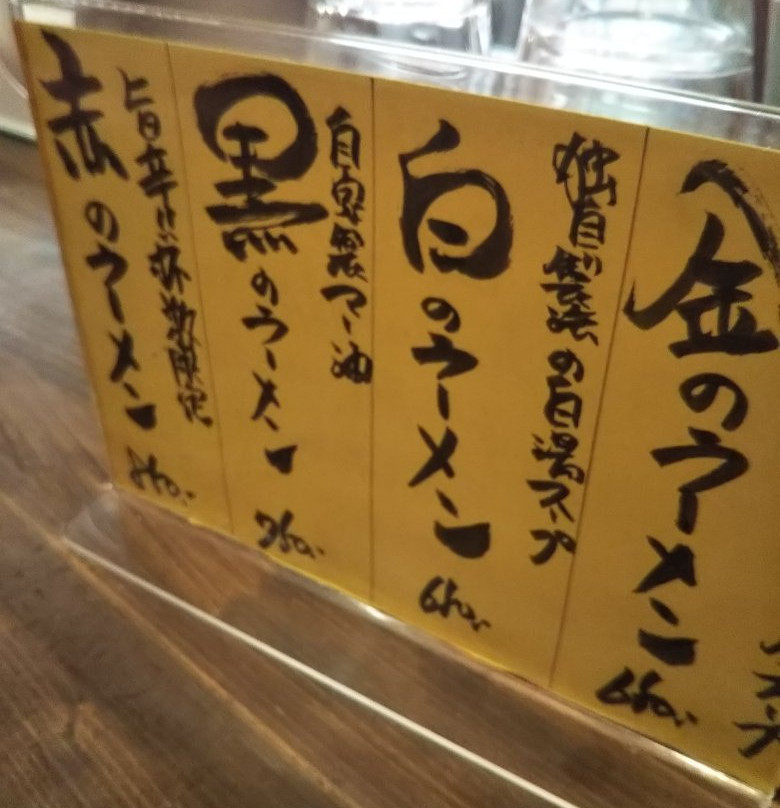 金のラーメン
独自製法の白湯スープ
白のラーメン
自家製マー油
黒のラーメン
旨辛い 杯数限定
赤のラーメン